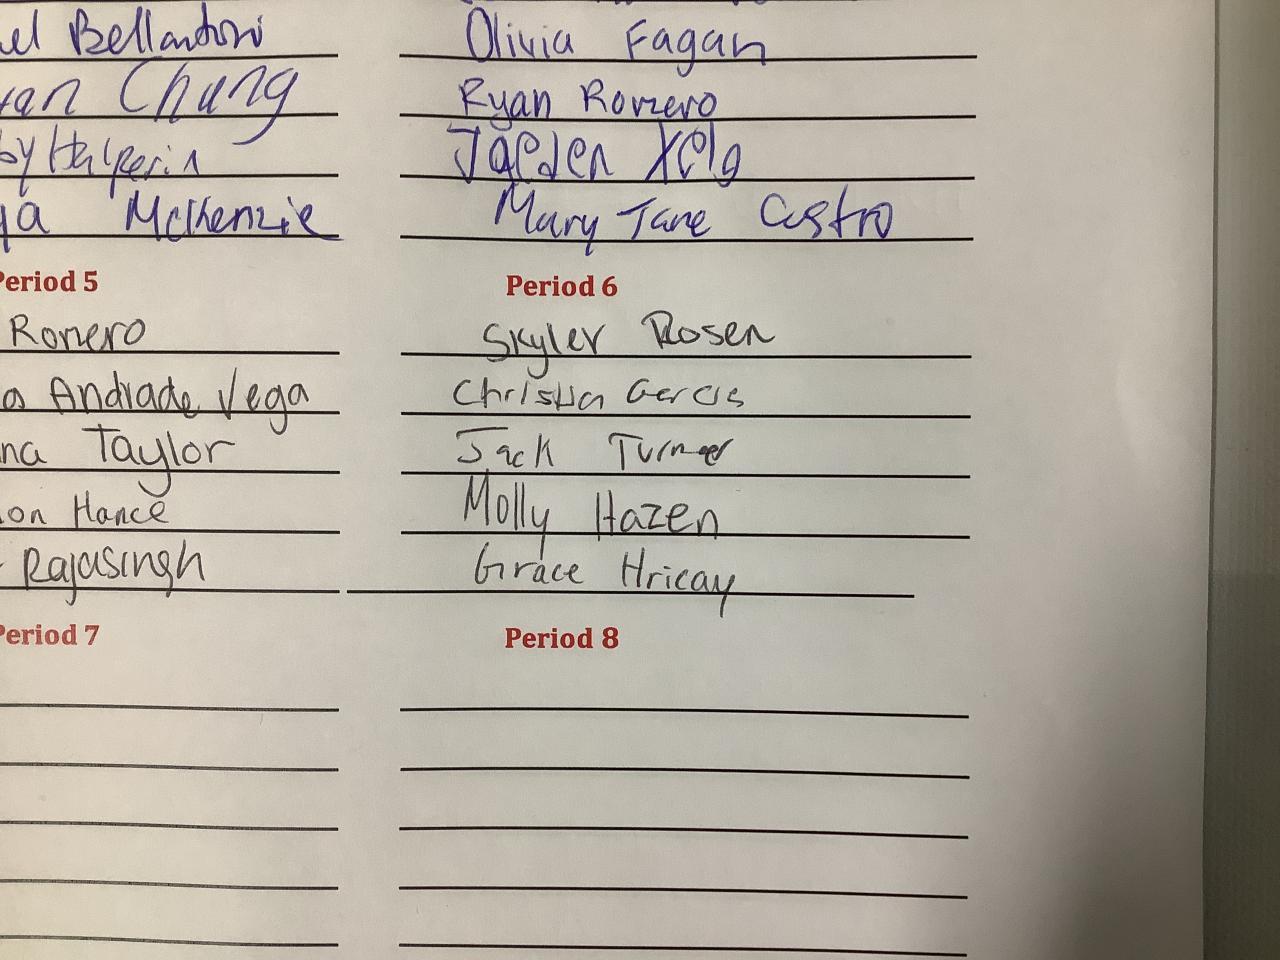 Bellantoni
Chung
Halperin
McKenzie
Olivia Fagan
Ryan Romero
Jaeden Xelo
Mary Jane Castro
Period 5
Romero
Andrade Vega
Taylor
Hance
Rajasingh
Period 6
Skyler Rosen
Christian Garcia
Jack Turner
Molly Hazen
Grace Hricay
Period 7
Period 8